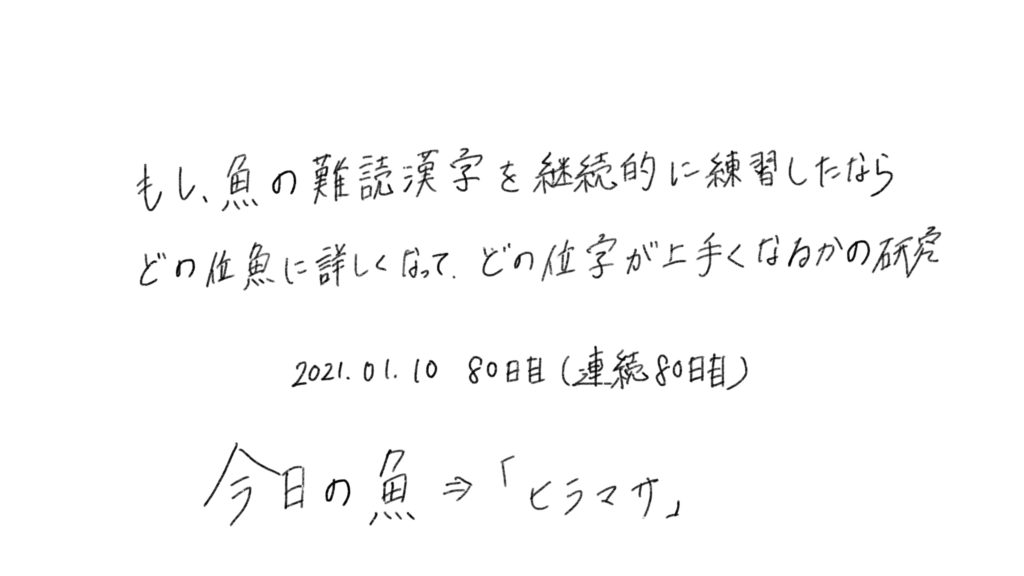 もし、魚の難読漢字を継続的に練習したなら
どの位魚に詳しくなって、どの位字が上手くなるかの研究
2021.01.10 80日目(連続80日目)
今日の魚⇒「ヒラマサ」